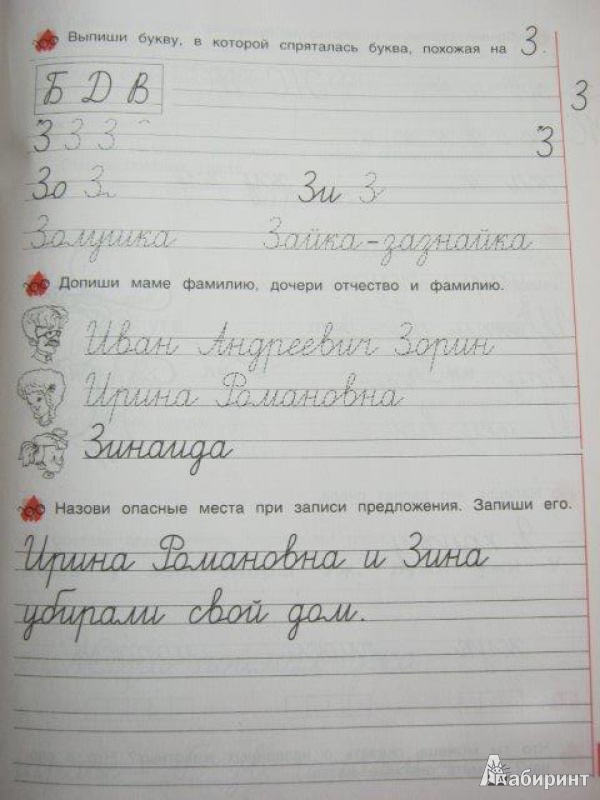 Выпиши букву, в которой спряталась буква, похожая на З.
Б Д В
З
З З З З
Зо З Зи З
Золушка Зайка-зазнайка
Допиши маме фамилию, дочери отчество и фамилию.
Иван Андреевич Зорин
Ирина Романовна
Зинаида
Назови опасные места при записи предложения. Запиши его.
Ирина Романовна и Зина
убирали свой дом.
Лабиринт